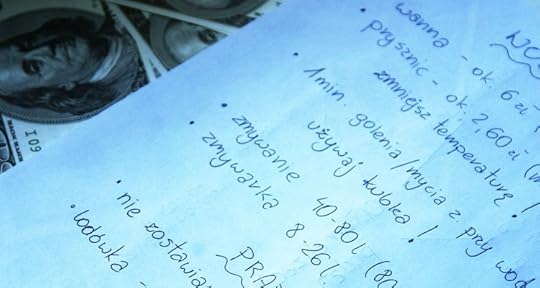 WO
• wanna - ok. 6 zł -
prysznic - ok. 2,60 zł (
zmniejsz temperaturę!
• 1 min. golenia/mycia z. przy
używaj kubka!
• zmywanie 40-80l (80
• zmywarka 8-26l
PRĄ
• nie zostawia
• lodówka -
I 09